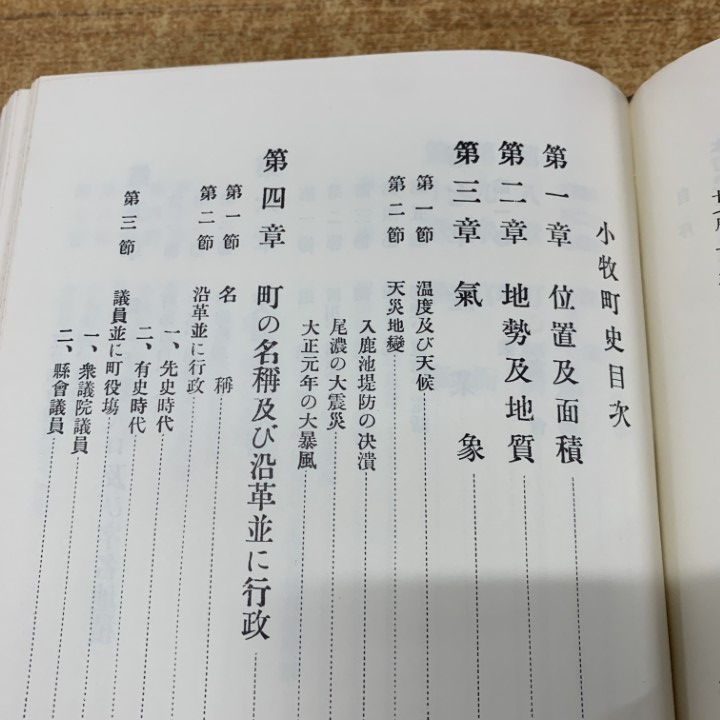 小牧町史目次
第一章 位置及面積
第二章 地勢及地質
第三章 氣象
第一節 温度及び天候
第二節 天災地變
入鹿池堤防の決潰
尾濃の大震災
大正元年の大暴風
第四章 町の名稱及び沿革並に行政
第一節 名稱
第二節 沿革並に行政
一、先史時代
二、有史時代
第三節 議員並に町役場
一、衆議院議員
二、縣會議員